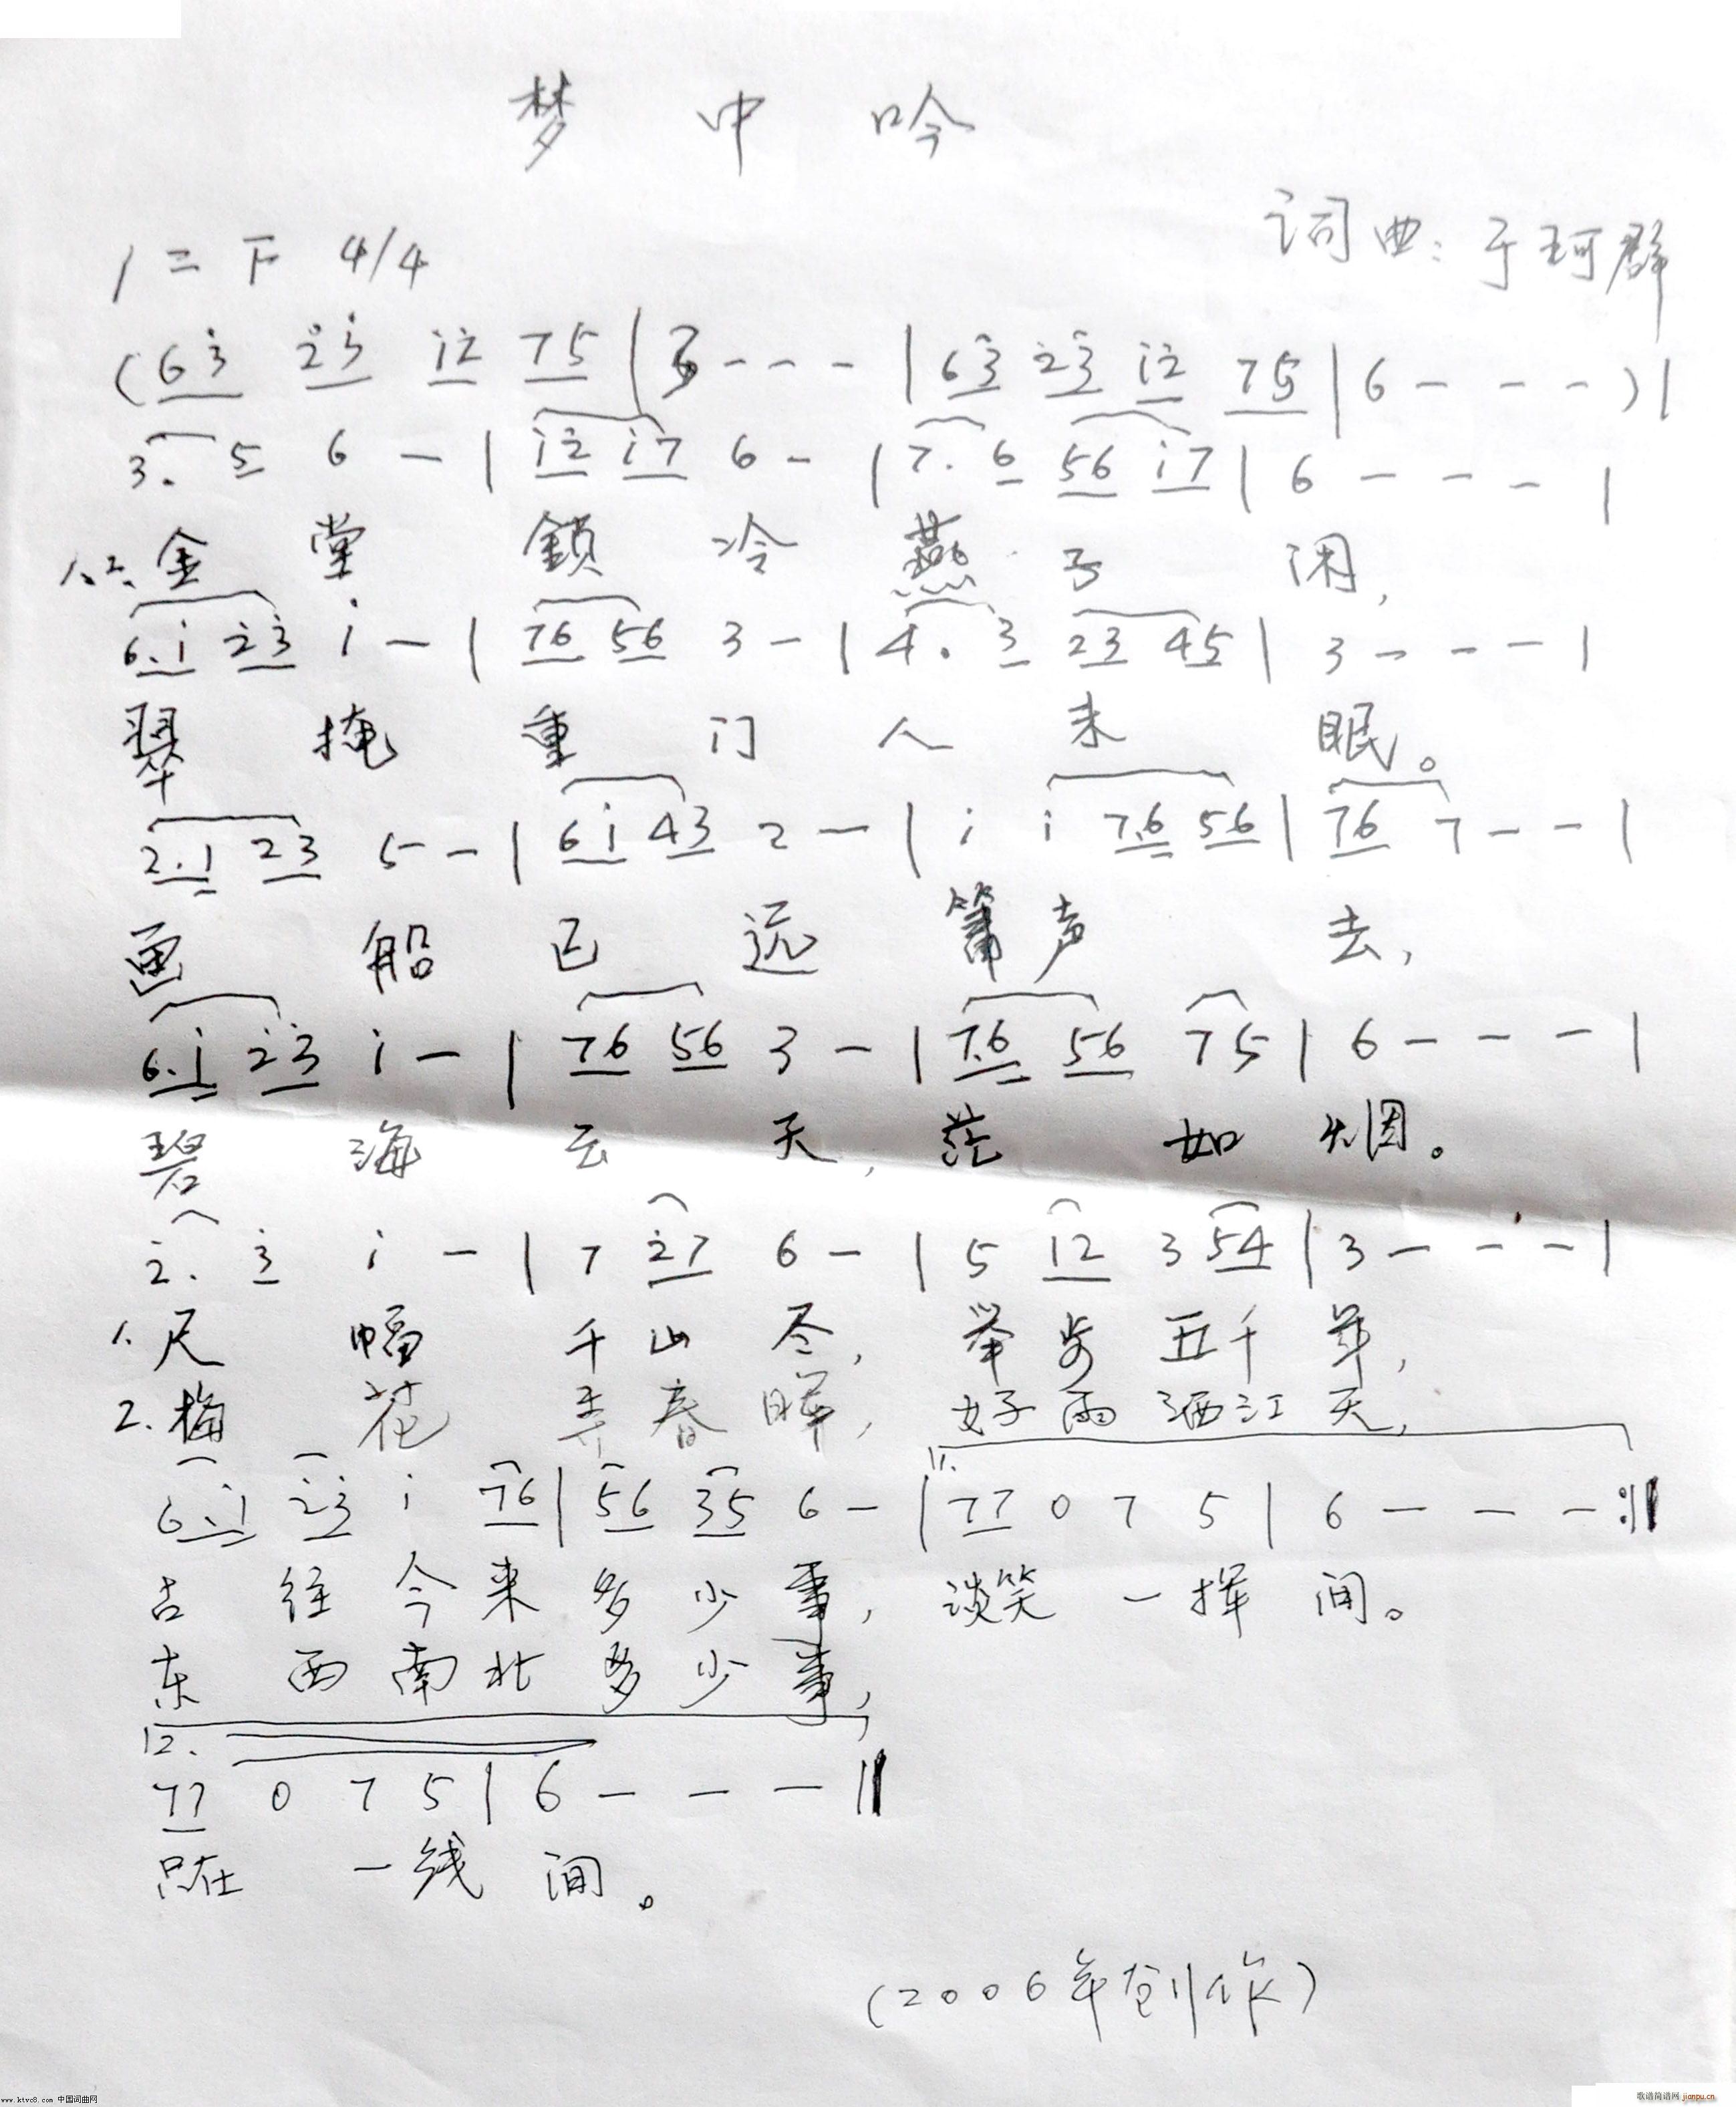 梦中吟
词曲：于珂群
1=F 4/4
(6 3̇ 2̇ 3̇ 1̇ 2̇ 7 5 | 3 - - - | 6 3̇ 2̇ 3̇ 1̇ 2̇ 7 5 | 6 - - -) |
3. 5 6 - | 1̇ 2̇ 1̇ 7 6 - | 7. 6 5 6 1̇ 7 | 6 - - - |
1.2. 金堂 鎖冷 燕子闲，
6. 1̇ 2̇ 3̇ 1̇ - | 7 6 5 6 3 - | 4. 3 2 3 4 5 | 3 - - - |
翠掩重门人未眠。
2. 1 2 3 5 - | 6 1̇ 4 3 2 - | 1̇ 1̇ 7. 6 5 6 | 7 6 7 - - |
画船已远箫声去，
6. 1̇ 2̇ 3̇ 1̇ - | 7 6 5 6 3 - | 7. 6 5 6 7 5 | 6 - - - |
碧海云天，茫如烟。
2̇. 3̇ 1̇ - | 7 2̇ 7 6 - | 5 1 2 3 5 4 | 3 - - - |
1. 尺幅千山尽，举步五千年，
2. 梅花弄春晖，好雨洒江天，
1.
6. 1̇ 2̇ 3̇ 1̇ 7 6 | 5 6 3 5 6 - | 7 7 0 7 5 | 6 - - - :||
古往今来多少事，谈笑一挥间。
东西南北多少事，
2.
7 7 0 7 5 | 6 - - - ||
只在一线间。
(2006年创作)
www.ktvc8.com 中国词曲网
歌谱简谱网 jianpu.cn